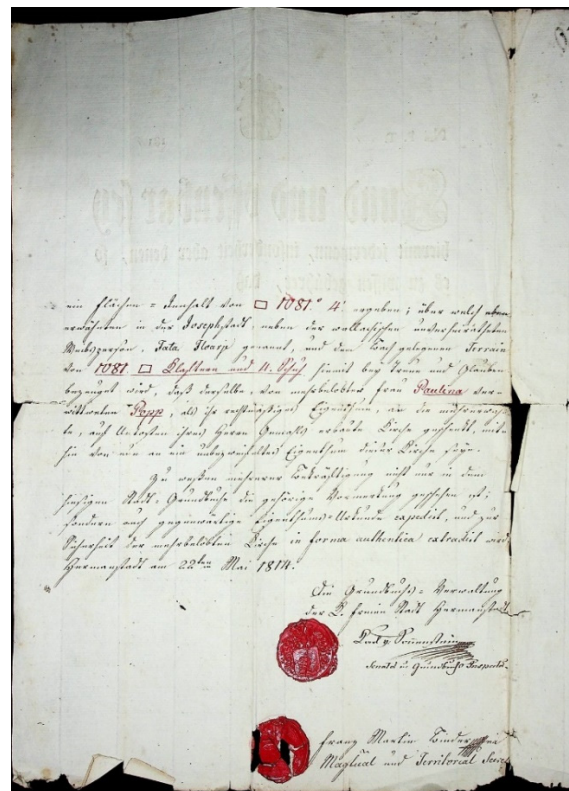 ein Flächen-Innhalt von □ 1081.° 4.' ergeben; über welch eben
erwähnten in der Josephstadt, neben der wallachischen unverheiratheten
Weibsperson, Tata genannt, und dem Bach gelegenen Terrain
von 1081. □ Klaftern und 4. Schuh hiemit bey Treue und Glauben
bezeuget wird, daß derselbe, von mehrbelobter Frau Paulina ver-
wittweten Popp, als ihr rechtmäßiges Eigenthum, an die mehrerwähn-
te, auf Unkosten ihres Herren Gemahls erbaute Kirche geschenkt, mit-
hin von nun an ein unbezweifeltes Eigenthum dieser Kirche seye.
Zu weßen mehrerer Bekräftigung nicht nur in dem
hiesigen Stadt-Grundbuche die gehörige Vormerkung geschehen ist;
sondern auch gegenwärtige Eigenthums-Urkunde expediert, und zur
Sicherheit der mehrbelobten Kirche in forma authentica extradiert wird
Hermanstadt am 22ten Mai 1814.
Die Grundbuchs-Verwaltung
der K. freien Stadt Hermanstadt
v. Sonnenstein
Senator u. Grundbuchs Inspector
Franz Martin Binder
Magistual und Territorial
Kund und offenbar sey
hiermit jedermann, insonderheit aber denen, so
es zu wissen gebühret, daß